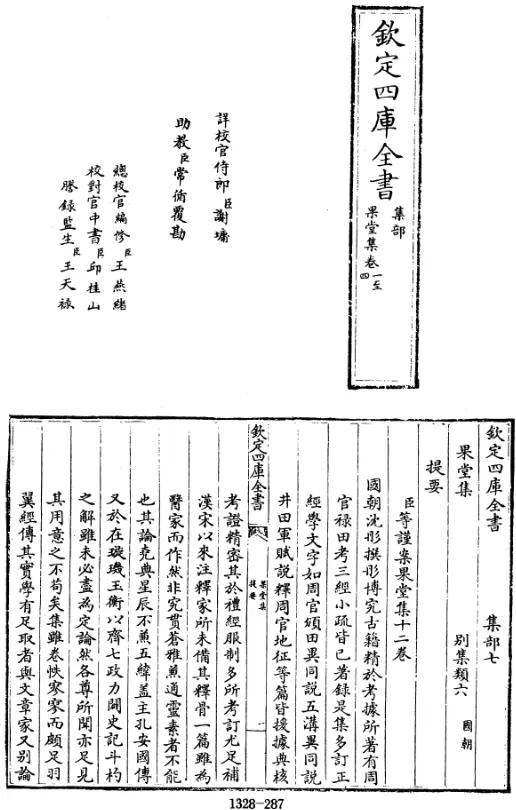 欽定四庫全書
集部
果堂集卷一至四
詳校官侍郎臣謝墉
助教臣常循覆勘
總校官編修臣王燕緒
校對官中書臣邱桂山
謄錄監生臣王天祿
欽定四庫全書 集部七
果堂集 別集類六 國朝
提要
臣等謹案果堂集十二卷
國朝沈彤撰彤博究古籍精於考據所著有周
官祿田考三經小疏皆已著錄是集多訂正
經學文字如周官頒田異同說五溝異同說
井田軍賦說釋周官地征等篇皆援據典核
欽定四庫全書
果堂集
提要
一
考證精密其於禮經服制多所考訂尤足補
漢宋以來注釋家所未備其釋骨一篇雖為
醫家而作然非究貫蒼雅兼通靈素者不能
也其論堯典星辰不兼五緯蓋主孔安國傳
又於在璇璣玉衡以齊七政力闢史記斗杓
之解雖未必盡為定論然各尊所聞亦足見
其用意之不苟矣集雖卷帙寥寥而頗足羽
翼經傳其實學有足取者與文章家又別論
1328-287